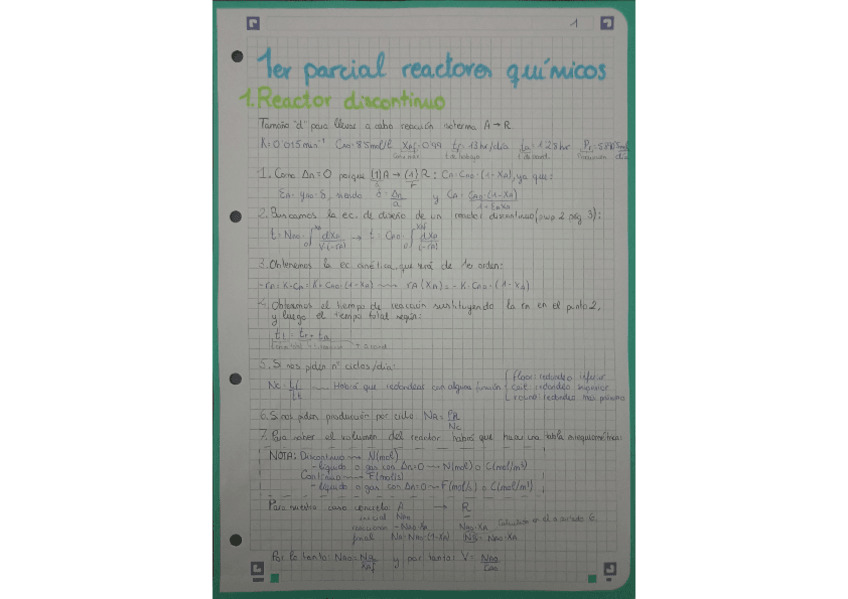 1
1er parcial reactores químicos
1. Reactor discontinuo
Tamaño "d" para llevar a cabo reacción isoterma A → R
K=0.015min⁻¹ CA0=8.5mol/l XAf=0.99 tf=13hr/día ta=1.28hr
1. Como Δn=0 porque (1)A → (1)R : CA=CA0·(1-XA), ya que:
EA=yA0·δ, siendo δ=Δn/a y CA=CA0·(1-XA)/1+EAXA
2. Buscamos la ec. de diseño de un reactor discontinuo (pag 3):
t=NA0·∫dXA/V·(-rA) → t=CA0·∫dXA/(-rA)
3. Obtenemos la ec. cinética, que será de 1er orden:
-rA=K·CA=K·CA0·(1-XA) rA(XA)=-K·CA0·(1-XA)
4. Obtenemos el tiempo de reacción sustituyendo la rA en el punto 2,
y luego el tiempo total según:
5. Si nos piden nº ciclos/día:
Nc= Habrá que redondear con alguna función
floor: redondeo inferior
ceil: redondeo superior
round: redondeo más próximo
6. Si nos piden producción por ciclo: NR=PR/Nc
7. Para saber el volumen del reactor habrá que hacer una tabla estequiométrica:
NOTA: Discontinuo → N(mol)
- líquido o gas con Δn=0 → N(mol) o C(mol/m³)
Continuo → F(mol/s)
- líquido o gas con Δn=0 → F(mol/s) o C(mol/m³)
Para nuestro caso concreto: A → R
inicial NA0
reacción -NA0·XA NA0·XA Calculado en el apartado 6.
final NA=NA0·(1-XA) NR=NA0·XA
Por lo tanto: NA0=NR/XAf y por tanto: V=NA0/CA0